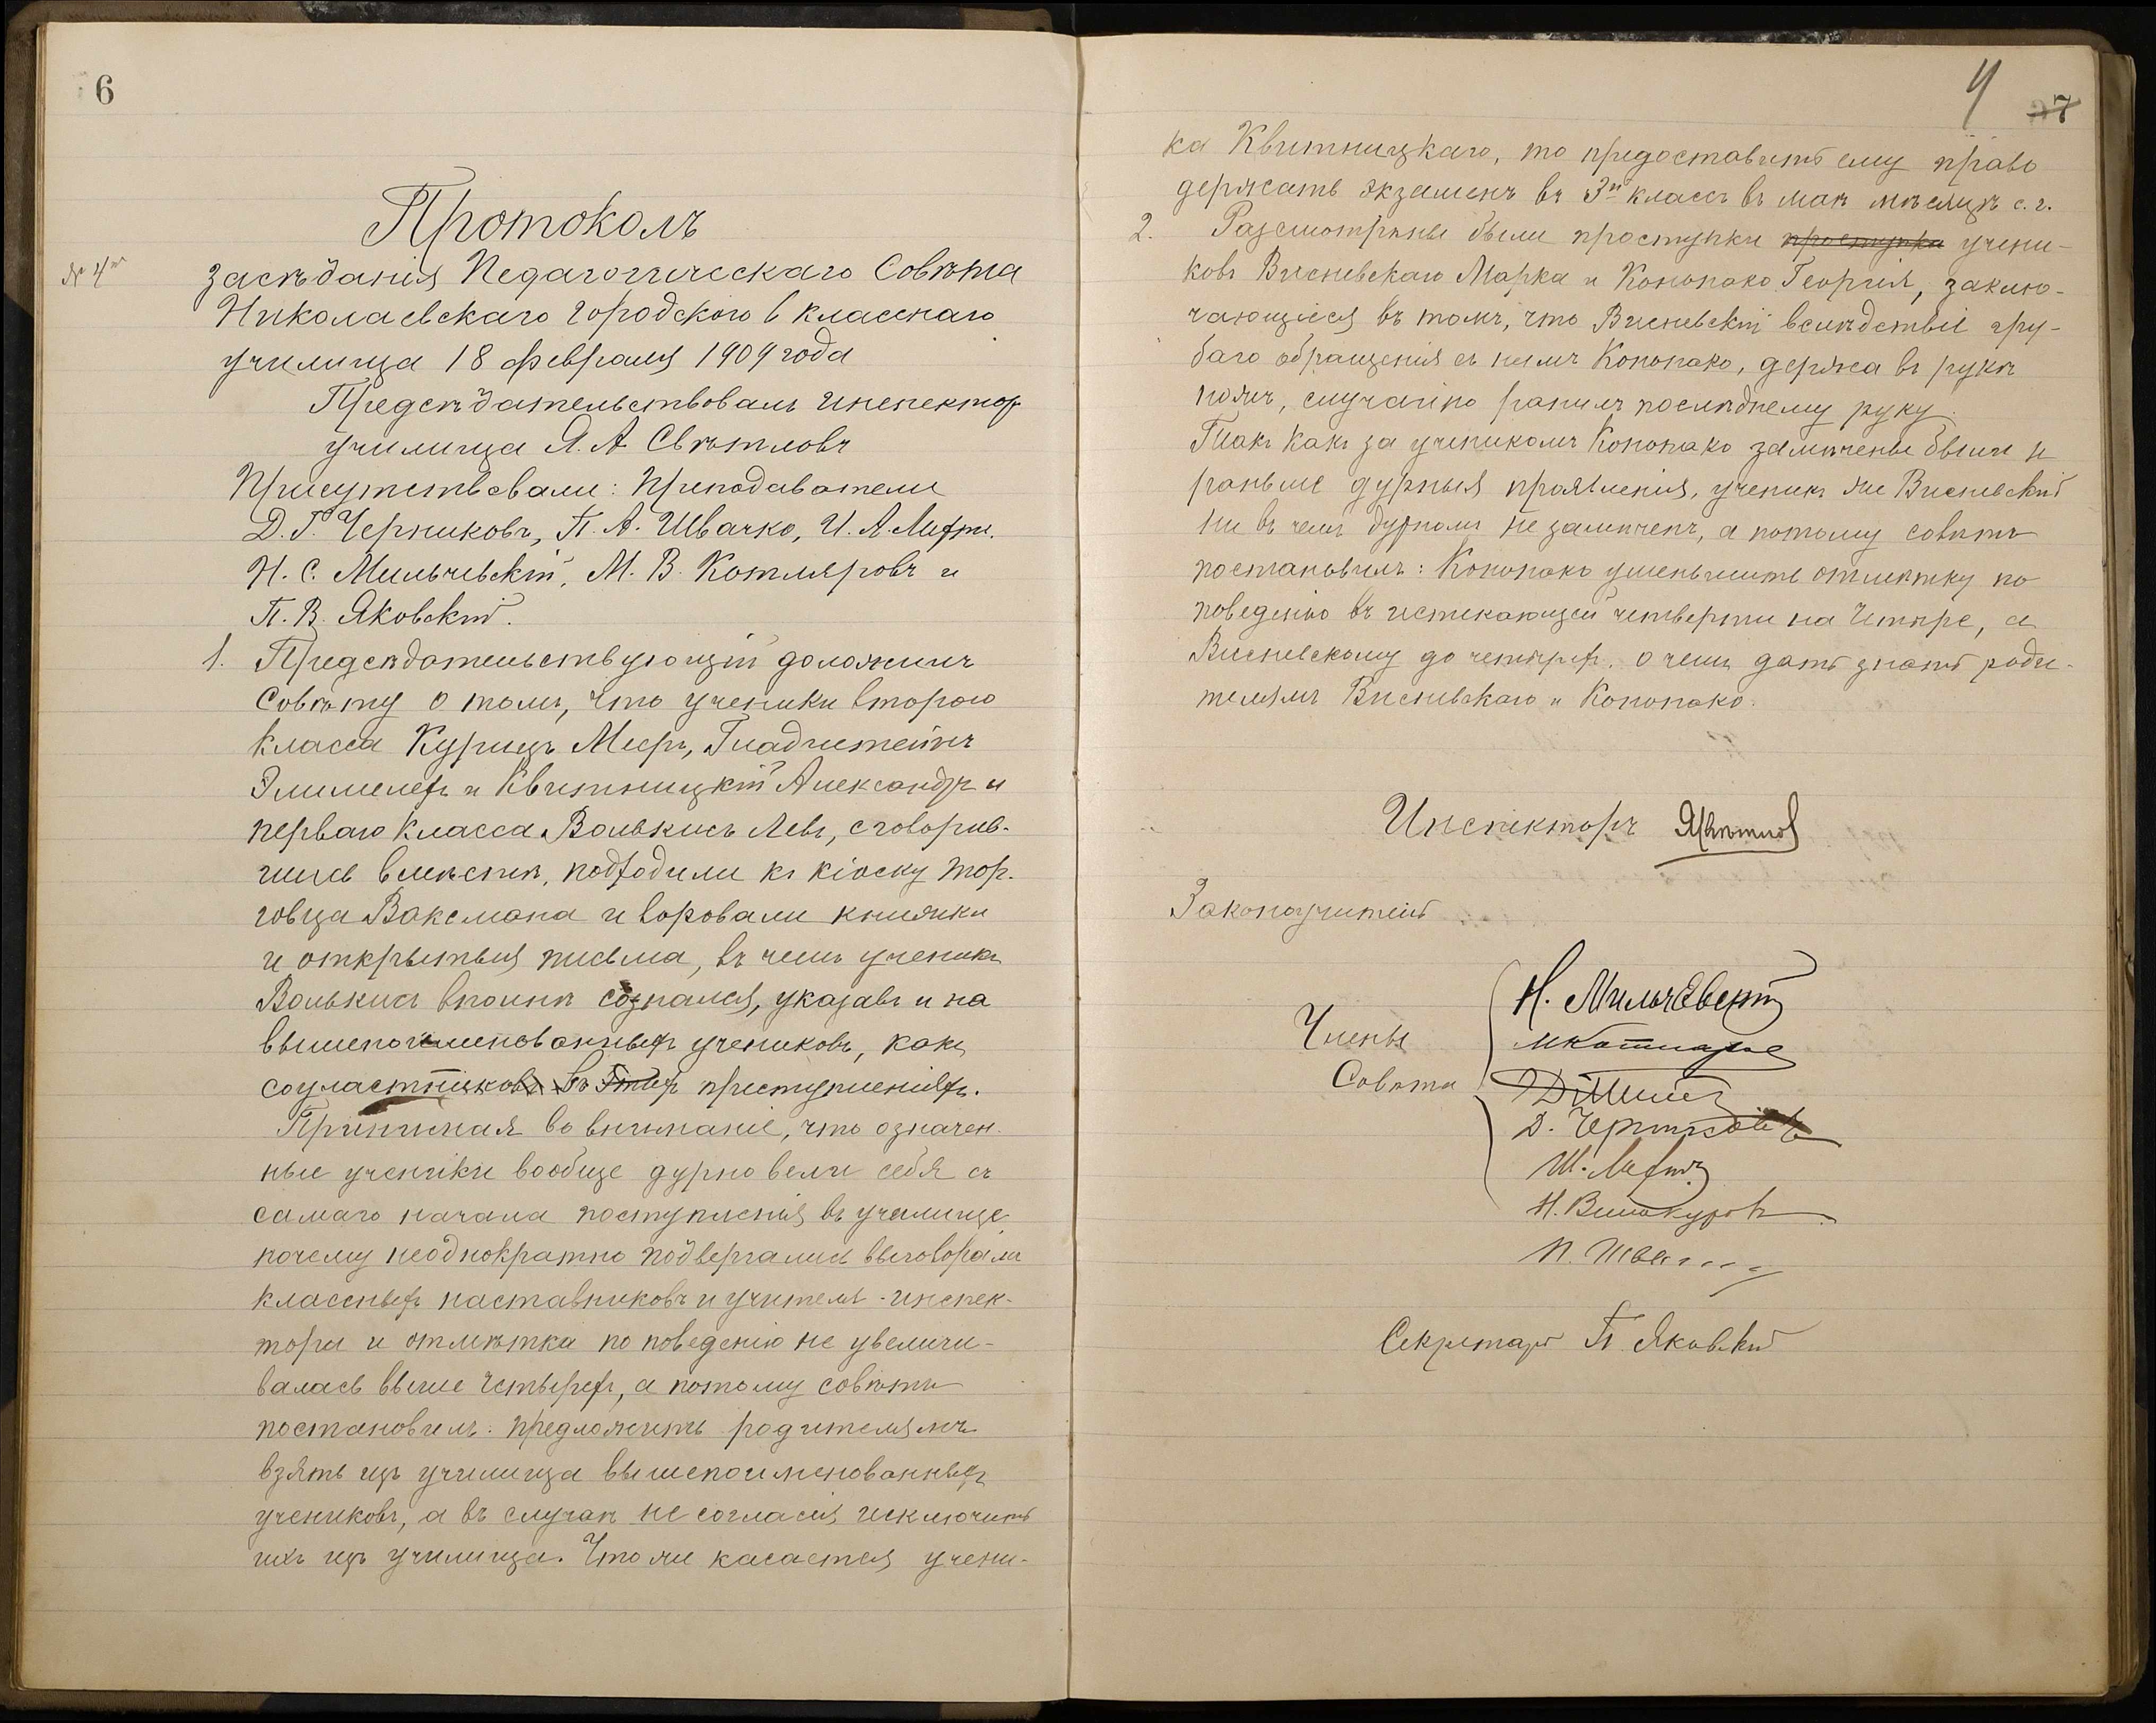 6
Протоколъ
№ 4й
засѣданія Педагогическаго Совѣта
Николаевскаго городского 6 класснаго
училища 18 февраля 1909 года
Предсѣдательствовалъ инспекторъ
училища Я. А. Свѣтловъ
Присутствовали: преподаватели
Д. Г. Черниковъ, П. А. Швачко, И. А. Лифш.
Н. С. Мильчевскій, М. В. Котляровъ и
П. В. Яковскій.
1. Предсѣдательствующій доложилъ
Совѣту о томъ, что ученики второго
класса Курицъ Меръ, Гладштейнъ
Элимелехъ и Квитницкій Александръ и
перваго класса Волькисъ Левъ, сговорив-
шись вмѣстѣ, подходили къ кіоску тор-
говцаВаксмана и воровали книжки
и открытыя письма, въ чемъ ученикъ
Волькисъ вполнѣ сознался, указавъ и на
вышепоименованныхъ учениковъ, какъ
соучастниковъ въ этихъ преступленіяхъ.
Принимая во вниманіе, что означен-
ные ученики вообще дурно вели себя съ
самаго начала поступленія въ училище
почему неоднократно подвергались выговорамъ
классныхъ наставниковъ и учителя-инспек-
тора и отмѣтка по поведенію не увеличи-
валась выше четырехъ, а потому совѣтъ
постановилъ: предложить родителямъ
взять изъ училища вышепоименованныхъ
учениковъ, а въ случаѣ не согласія исключить
ихъ изъ училища. Что же касается учени-
4 7
ка Квитницкаго, то предоставить ему право
держать экзаменъ въ 3й классъ въ маѣ мѣсяцѣ с. г.
2. Разсмотрѣны были проступки проступки учени-
ковъ Висневскаго Марка и Конопако Георгія, заклю-
чающіеся въ томъ, что Висневскій вслѣдствіе гру-
баго обращенія съ нимъ Конопако, держа въ рукѣ
ножъ, случайно ранилъ послѣднему руку.
Такъ какъ за ученикомъ Конопако замѣчены были и
раньше дурныя проявленія, ученикъ же Висневскій
ни въ чемъ дурномъ не замѣченъ, а потому совѣтъ
постановилъ: Конопако уменьшить отмѣтку по
поведенію въ истекающей четверти на четыре, а
Висневскому до четырехъ, о чемъ дать знать роди-
телямъ Висневскаго и Конопако.
Инспекторъ ЯСвѣтлов
Законоучитель
Члены
Совѣта
Н. Мильчевскій
МКотляров
Д. Черниковъ
Ш. Лифшъ
Н. Винокуровъ
П. Шва
Секретарь П. Яковскій